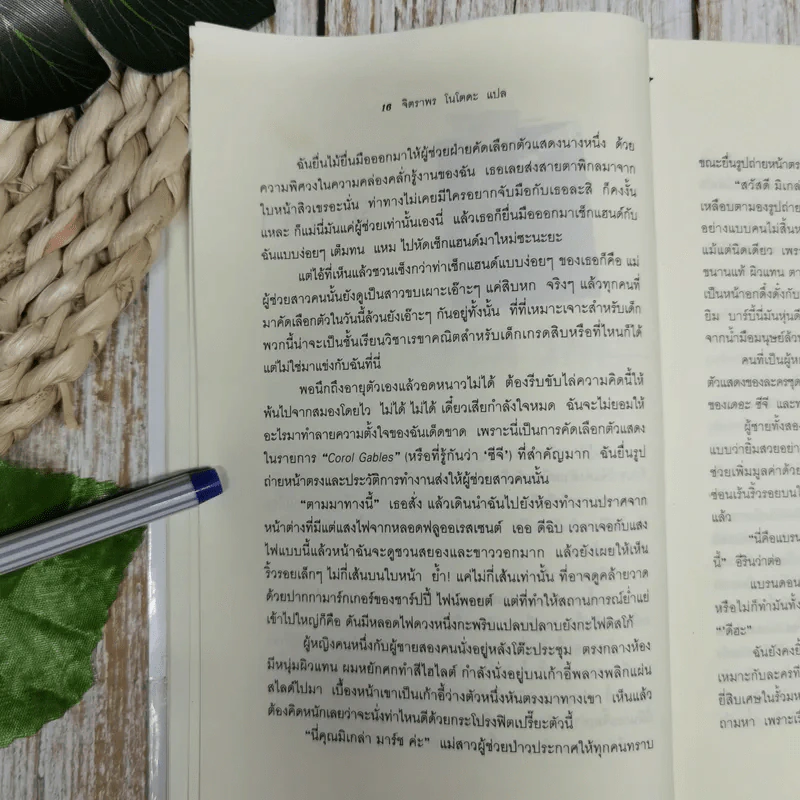 16 จิตราพร โนโตดะ แปล
ฉันยื่นไม้ยื่นมือออกมาให้ผู้ช่วยฝ่ายคัดเลือกตัวแสดงนางหนึ่ง ด้วย
ความพิศวงในความคล่องคลั่กรู้งานของฉัน เธอเลยส่งสายตาพิกลมาจาก
ใบหน้าสิวเขรอะนั่น ท่าทางไม่เคยมีใครอยากจับมือกับเธอละสิ ก็คงงั้น
แหละ ก็แม่นี่มันแค่ผู้ช่วยเท่านั้นเองนี่ แล้วเธอก็ยื่นมือออกมาเช็กแฮนด์กับ
ฉันแบบง่อยๆ เต็มทน แหม ไปหัดเช็กแฮนด์มาใหม่ซะนะยะ
แต่ไอ้ที่เห็นแล้วชวนเซ็งกว่าท่าเช็กแฮนด์แบบง่อยๆ ของเธอก็คือ แม่
ผู้ช่วยสาวคนนั้นยังดูเป็นสาวขบเผาะเอ๊าะๆ แค่สิบหก จริงๆ แล้วทุกคนที่
มาคัดเลือกตัวในวันนี้ล้วนยังเอ๊าะๆ กันอยู่ทั้งนั้น ที่ที่เหมาะเจาะสำหรับเด็ก
พวกนี้น่าจะเป็นชั้นเรียนวิชาเรขาคณิตสำหรับเด็กเกรดสิบหรือที่ไหนก็ได้
แต่ไม่ใช่มาแข่งกับฉันที่นี่
พอนึกถึงอายุตัวเองแล้วอดหนาวไม่ได้ ต้องรีบขับไล่ความคิดนี้ให้
พ้นไปจากสมองโดยไว ไม่ได้ ไม่ได้ เดี๋ยวเสียกำลังใจหมด ฉันจะไม่ยอมให้
อะไรมาทำลายความตั้งใจของฉันเด็ดขาด เพราะนี่เป็นการคัดเลือกตัวแสดง
ในรายการ “Corol Gables” (หรือที่รู้กันว่า ‘ซีจี’) ที่สำคัญมาก ฉันยื่นรูป
ถ่ายหน้าตรงและประวัติการทำงานส่งให้ผู้ช่วยสาวคนนั้น
“ตามมาทางนี้” เธอสั่ง แล้วเดินนำฉันไปยังห้องทำงานปราศจาก
หน้าต่างที่มีแต่แสงไฟจากหลอดฟลูออเรสเซนต์ เออ ดีฉิบ เวลาเจอกับแสง
ไฟแบบนี้แล้วหน้าฉันจะดูชวนสยองและขาววอกมาก แล้วยังเผยให้เห็น
ริ้วรอยเล็กๆ ไม่กี่เส้นบนใบหน้า ย้ำ! แค่ไม่กี่เส้นเท่านั้น ที่อาจดูคล้ายวาด
ด้วยปากกามาร์กเกอร์ของชาร์ปปี้ ไฟน์พอยต์ แต่ที่ทำให้สถานการณ์ย่ำแย่
เข้าไปใหญ่ก็คือ ดันมีหลอดไฟดวงหนึ่งกะพริบแปลบปลาบยังกะไฟดิสโก้
ผู้หญิงคนหนึ่งกับผู้ชายสองคนนั่งอยู่หลังโต๊ะประชุม ตรงกลางห้อง
มีหนุ่มผิวแทน ผมหยักศกทำสีไฮไลต์ กำลังนั่งอยู่บนเก้าอี้พลางพลิกแผ่น
สไลด์ไปมา เบื้องหน้าเขาเป็นเก้าอี้ว่างตัวหนึ่งหันตรงมาทางเขา เห็นแล้ว
ต้องคิดหนักเลยว่าจะนั่งท่าไหนดีด้วยกระโปรงฟิตเปรี๊ยะตัวนี้
“นี่คุณมิเกล่า มาร์ช ค่ะ” แม่สาวผู้ช่วยป่าวประกาศให้ทุกคนทราบ
ขณะยื่นรูปถ่ายหน้าตร
“สวัสดี มิเกล
เหลือบตามองรูปถ่าย
อย่างแบบคนไม่สิ้นห
แม้แต่นิดเดียว เพร
ขนานแท้ ผิวแทน ตา
เป็นหน้าอกดึ๋งดั๋งกับ
ยิม บาร์บี้นี่มันหุ่นดี
จากน้ำมือมนุษย์ล้ว
คนที่เป็นผู้ห
ตัวแสดงของละครชุด
ของเดอะ ซีจี และท
ผู้ชายทั้งสอง
แบบว่ายิ้มสวยอย่า
ช่วยเพิ่มมูลค่าด้วย
ซ่อนเร้นริ้วรอยบนใ
แล้ว
“นี่คือแบรน
นี้” อีรินว่าต่อ
แบรนดอน
หรือไม่ก็ทำมันทั้ง
“‘ดีฮะ”
ฉันยังคงยิ้
เหมาะกับละครที่
ยี่สิบเศษในร้วมห
ถามหา เพราะเรื